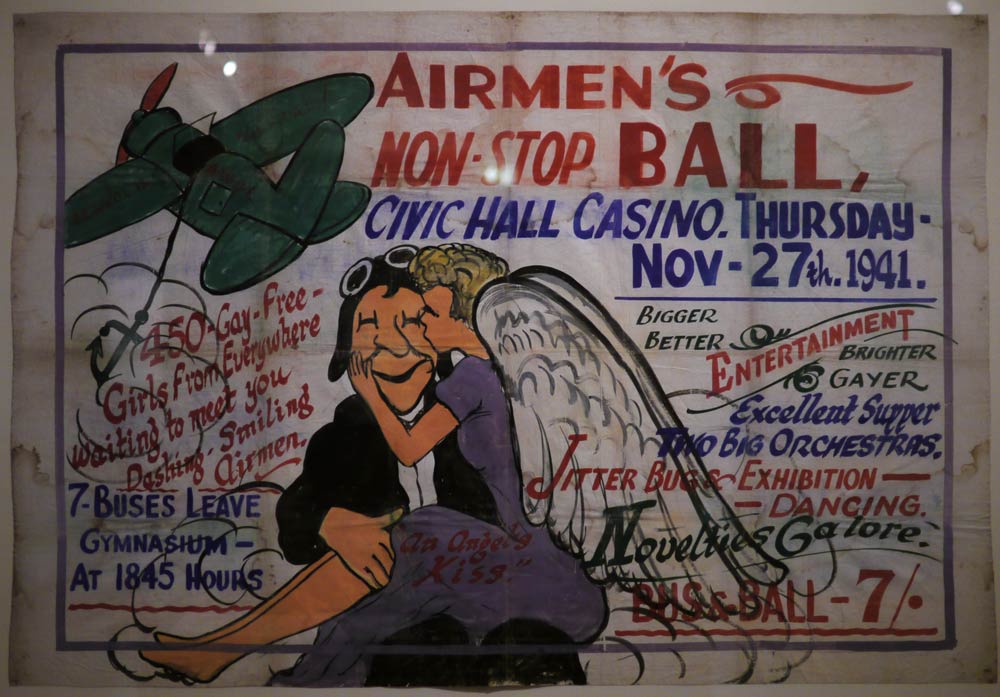 AIRMEN'S
NON-STOP BALL,
CIVIC HALL CASINO. THURSDAY-
NOV-27th. 1941.
450-Gay-Free-
Girls from Everywhere
waiting to meet you
Dashing, Smiling
Airmen.
7-BUSES LEAVE
GYMNASIUM-
AT 1845 HOURS
An Angel's
Kiss."
BIGGER
BETTER
ENTERTAINMENT
BRIGHTER
& GAYER
Excellent Supper
TWO BIG ORCHESTRAS.
JITTER BUG & EXHIBITION-
-DANCING.
Novelties Galore.
BUS & BALL-7/.